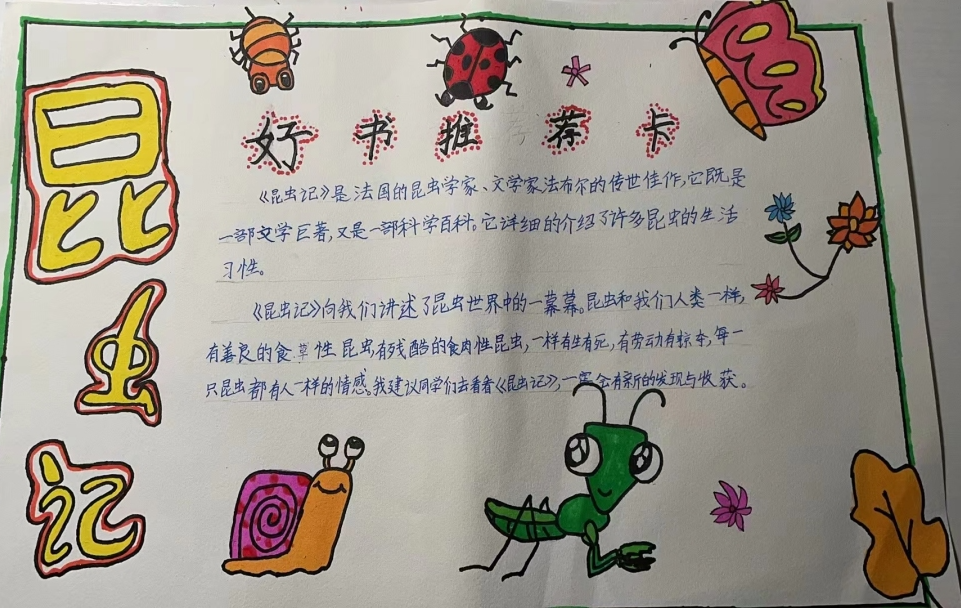 昆虫记
好书推荐卡
《昆虫记》是法国的昆虫学家、文学家法布尔的传世佳作,它既是
一部文学巨著,又是一部科学百科。它详细的介绍了许多昆虫的生活
习性。
《昆虫记》向我们讲述了昆虫世界中的一幕幕。昆虫和我们人类一样,
有善良的食草性昆虫,有残酷的食肉性昆虫,一样有生有死,有劳动有掠夺,每一
只昆虫都有人一样的情感。我建议同学们去看看《昆虫记》,一定会有新的发现与收获。